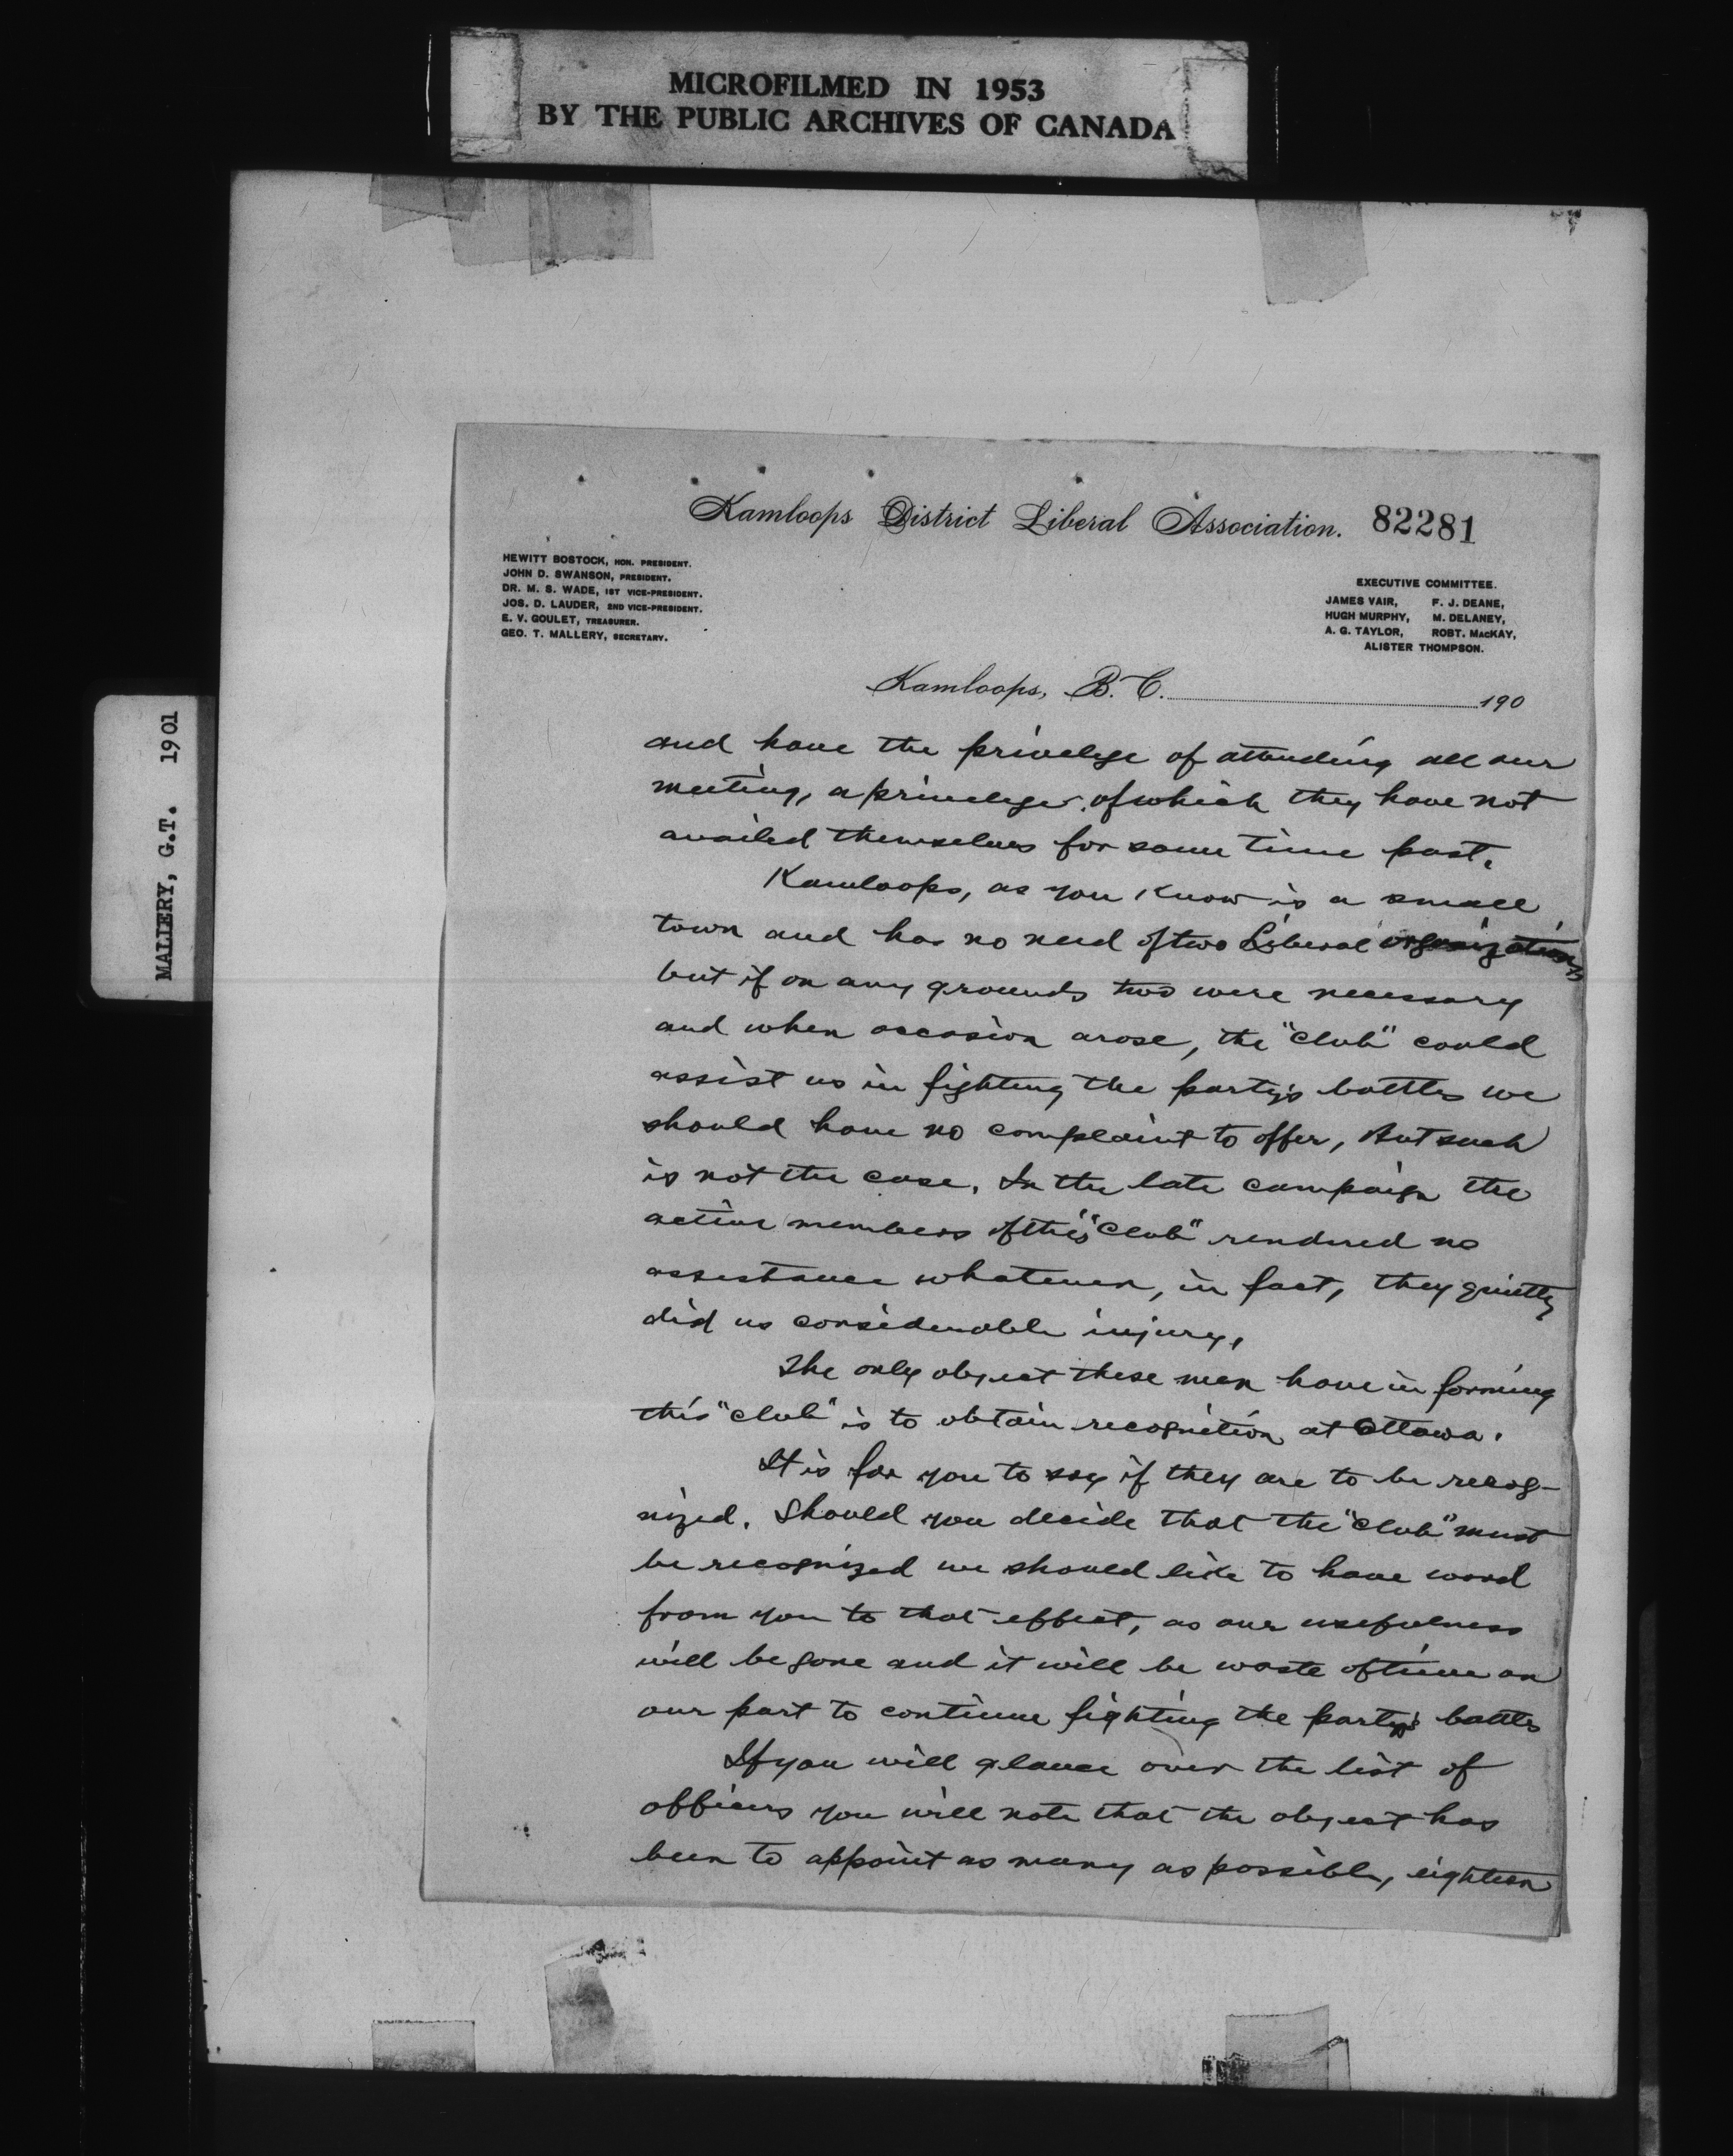 MICROFILMED IN 1953
BY THE PUBLIC ARCHIVES OF CANADA
MALLERY, G.T. 1901
Kamloops District Liberal Association. 82281
HEWITT BOSTOCK, HON. PRESIDENT.
JOHN D. SWANSON, PRESIDENT.
DR. M. S. WADE, 1ST VICE-PRESIDENT.
JOS. D. LAUDER, 2ND VICE-PRESIDENT.
E. V. GOULET, TREASURER.
GEO. T. MALLERY, SECRETARY.
EXECUTIVE COMMITTEE.
JAMES VAIR, F. J. DEANE,
HUGH MURPHY, M. DELANEY,
A. G. TAYLOR, ROBT. MACKAY,
ALISTER THOMPSON.
Kamloops, B. C. 190
and have the privelege of attending all our
meeting, a privelege of which they have not
availed themselves for some time past.
Kamloops, as you know is a small
town and has no need of two Liberal organizations
but if on any grounds two were necessary
and when occasion arose, the "club" could
assist us in fighting the party's battles we
should have no complaint to offer, But such
is not the case. In the late campaign the
active members of this "club" rendered no
assistance whatever, in fact, they quietly
did us considerable injury.
The only object these men have in forming
this "club" is to obtain recognition at Ottawa.
It is for you to say if they are to be recog-
nized. Should you decide that the "club" must
be recognized we should like to have word
from you to that effect, as our usefulness
will be gone and it will be waste of time on
our part to continue fighting the party's battles
If you will glance over the list of
officers you will note that the object has
been to appoint as many as possible, eighteen